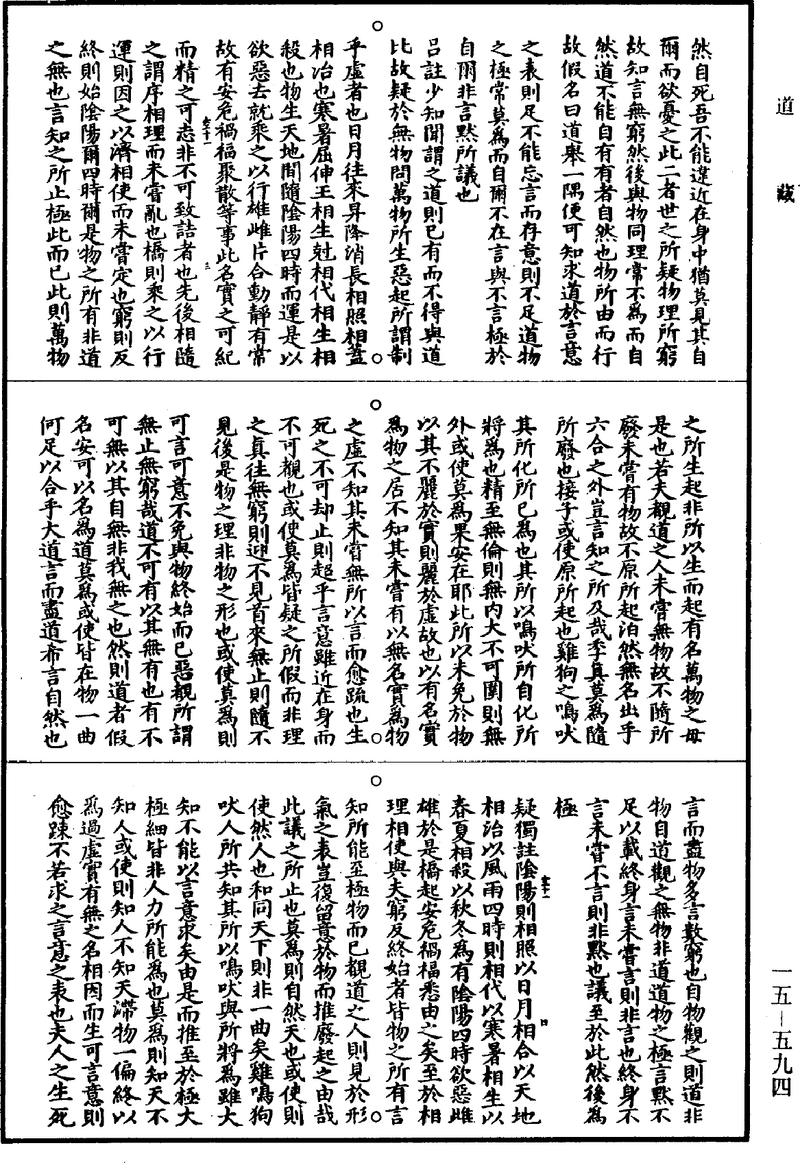 道藏
然自死吾不能違近在身中猶莫見其自
爾而欲憂之此二者世之所疑物理所窮
故知言無窮然後與物同理常不為而自
然道不能自有有者自然也物所由而行
故假名曰道舉一隅便可知求道於言意
之表則足不能忘言而存意則不足道物
之極常莫為而自爾不在言與不言極於
自爾非言默所議也
呂註少知聞謂之道則已有而不得與道
比故疑於無物問萬物所生惡起所謂制
乎虛者也日月往來昇降消長相照相蓋
相治也寒暑屈伸王相生尅相代相生相
殺也物生天地間隨陰陽四時而運是以
欲惡去就乘之以行雄雌片合動靜有常
故有安危禍福聚散等事此名實之可紀
而精之可志非不可致詰者也先後相隨
之謂序相理而未嘗亂也橋則乘之以行
運則因之以濟相使而未嘗定也窮則反
終則始陰陽爾四時爾是物之所有非道
之無也言知之所止極此而已此則萬物
之所生起非所以生而起有名萬物之母
是也若夫觀道之人未嘗無物故不隨所
廢未嘗有物故不原所起泊然無名出乎
六合之外豈言知之所及哉季真莫為隨
所廢也接子或使原所起也雞狗之鳴吠
其所化所已為也其所以鳴吠所自化所
將為也精至無倫則無內大不可圍則無
外或使莫為果安在耶此所以未免於物
以其不麗於實則麗於虛故也以有名實
為物之居不知其未嘗有以無名實為物
之虛不知其未嘗無所以言而愈疏也生
死之不可却止則超乎言意雖近在身而
不可覩也或使莫為皆疑之所假而非理
之真往無窮則迎不見首來無止則隨不
見後是物之理非物之形也或使莫為則
可言可意不免與物終始而已惡覩所謂
無止無窮哉道不可有以其無有也有不
可無以其自無非我無之也然則道者假
名安可以名為道莫為或使皆在物一曲
何足以合乎大道言而盡道希言自然也
言而盡物多言數窮也自物觀之則道非
物自道觀之無物非道道物之極言默不
足以載終身言未嘗言則非言也終身不
言未嘗不言則非默也議至於此然後為
極
疑獨註陰陽則相照以日月相合以天地
相治以風雨四時則相代以寒暑相生以
春夏相殺以秋冬為有陰陽四時欲惡雌
雄於是橋起安危禍福悉由之矣至於相
理相使與夫窮及終始者皆物之所有言
知所能至極物而已覩道之人則見於形
氣之表豈復留意於物而推廢起之由哉
此議之所止也莫為則自然天也或使則
使然人也和同天下則非一曲矣雞鳴狗
吠人所共知其所以鳴吠與所將為雖大
知不能以言意求矣由是而推至於極大
極細皆非人力所能為也莫為則知天不
知人或使則知人不知天滯物一偏終以
為過虛實有無之名相因而生可言意則
愈踈不若求之言意之表也夫人之生死
一五－五九四